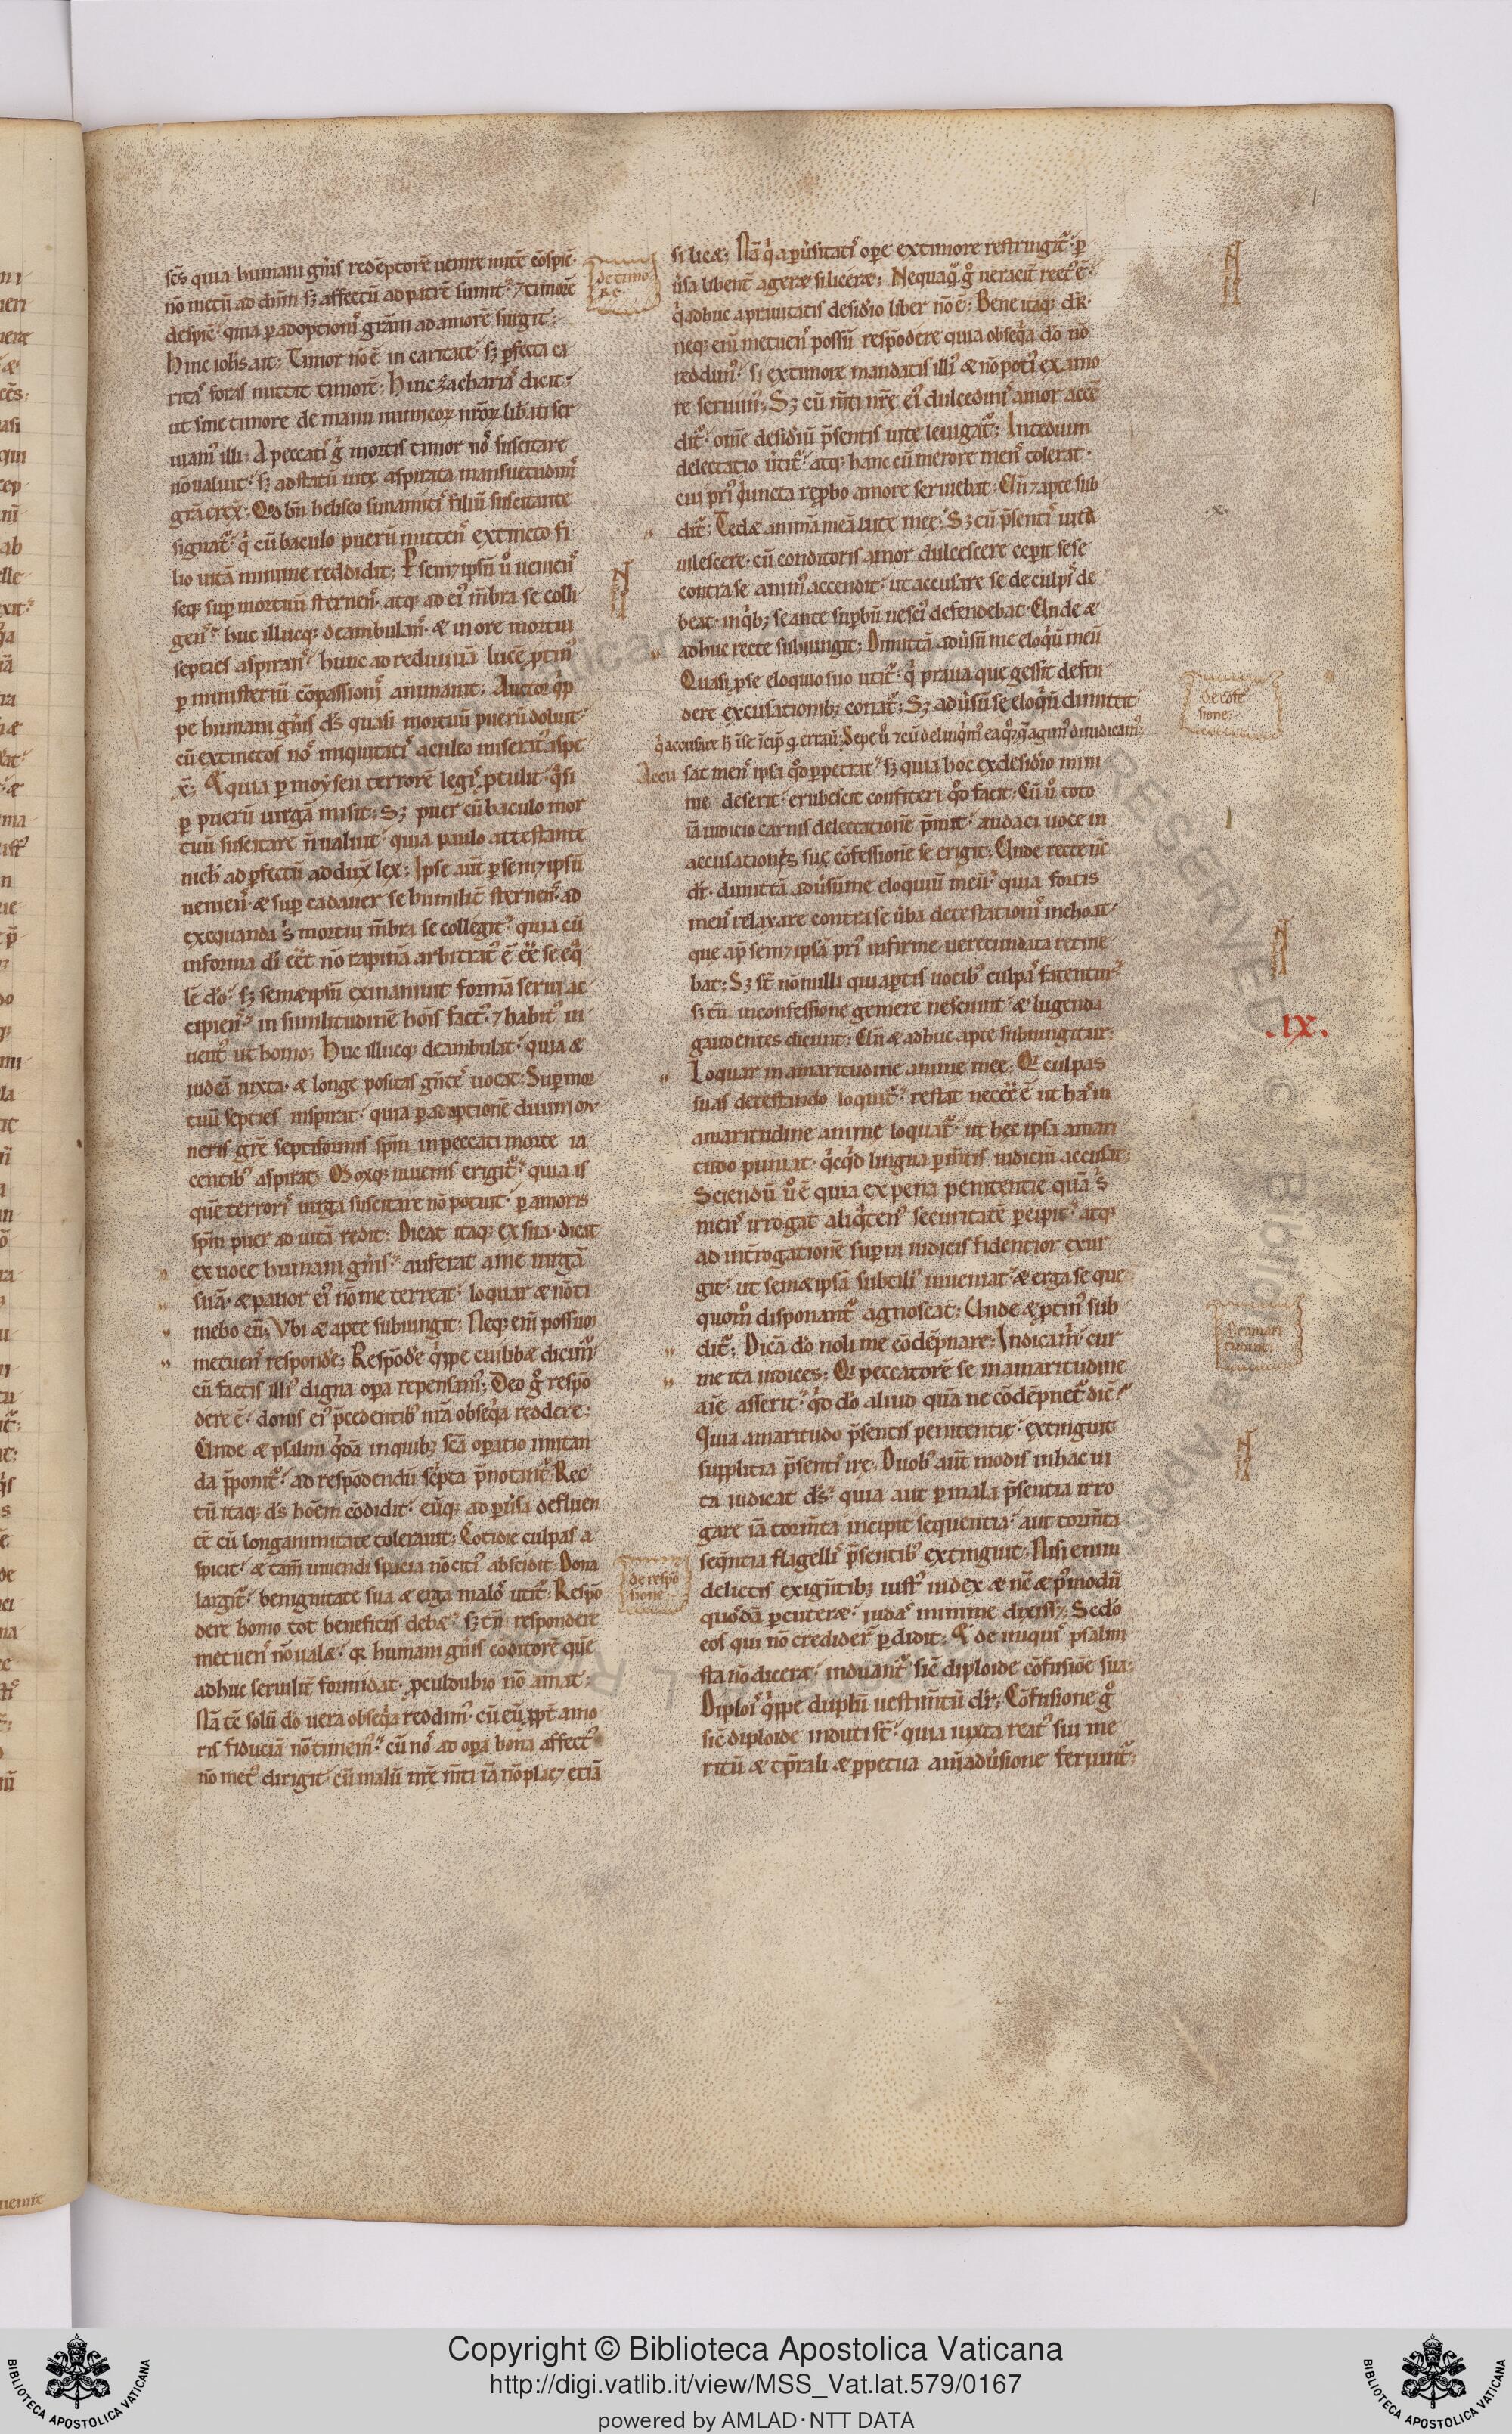 sc̄s quia humani gn̄is redēptorē uenire mitē cōspic̄·
nō metū ad dn̄m sꝫ affectū ad patrē sumit· ⁊ timorē
despic̄· quia ꝑ adoptionis gr̄am ad amorē surgit·
Hinc ioh̄s ait· Timor nō ē in caritate· sꝫ ꝑfecta ca
ritas foras mittit timorē· Hinc zacharias dicit·
ut sine timore de manu inimicoꝝ nr̄oꝝ liberati ser
uiamus illi· A peccati gͦ mortis timor nos suscitare
nō ualuit· sꝫ ad statū uitę aspirata mansuetudinis
gr̄a erex̄· Qd̄ bn̄ heliseo sunamitis filiū suscitante
signat᷑· qͥ cū baculo puerū mittens extincto fi
lio uitā minime reddidit· Per sem⁊ipsū uͦ ueniens
seq; suꝑ mortuū sternens· atq; ad eiꝰ mēbra se colli
gens· huc illucq; deambulans· & in ore mortui
septies aspirans· hunc ad rediuiuā lucē ꝓtinꝰ
ꝑ ministeriū cōpassionis animauit· Auctor qͥp
pe humani gn̄is ds̄ quasi mortuū puerū doluit·
cū extinctos nos iniquitatis aculeo miseratꝰ aspe
x̄· & quia ꝑ moysen terrorē legis ꝓtulit· qͣsi
ꝑ puerū uirgā misit· Sꝫ puer cū baculo mor
tuū suscitare n̄ ualuit· quia paulo attestante
nichil ad ꝑfectū addux̄ lex· Ipse aut̄ ꝑ sem⁊ipsū
ueniens· & suꝑ cadauer se humilit̄ sternens· ad
exequanda s̄ mortui mēbra se collegit· quia cū
in forma dī eēt nō rapinā arbitrat᷑ ē eē se eq̄
lē dō· sꝫ sem&ipsū exinaniuit formā serui ac
cipiens· in similitudinē hōis factꝰ· ⁊ habitu in
uentꝰ ut homo· Huc illucq; deambulat· quia &
iudeā iuxta· & longe positas gn̄tes uocat· Suꝑ mor
tuū septies inspirat· quia ꝑ adoptionē diuini mu
neris grē septiformis sp̄m in peccati morte ia
centibꝰ aspirat· Moxq; iuuenis erigit᷑· quia is
quē terroris uirga suscitare nō potuit· ꝑ amoris
sp̄m puer ad uitā redit· Dicat itaq; ex sua· dicat
ex uoce humani gn̄is· auferat a me uirgā
suā· & pauor eiꝰ nō me terreat· loquar & nō ti
mebo eū· Vbi & apte subiungit· Neq; eni possum
metuens responde· Respōde qͥppe cuilib& dicimꝰ
cū factis illiꝰ digna oꝑa repensamꝰ· Deo gͦ respō
dere ē· donis eiꝰ p̄cedentibꝰ nr̄a obseqͥa reddere·
Vnde & psalmi qͥdā inquibꝫ scā oꝑatio imitan
da ꝓponit᷑· ad respōdendū scͥpta p̄notant᷑· Rec
tū itaq; ds̄ hōem cōdidit· eūq; ad ꝑuersa defluen
tē cū longanimitate tolerauit· Cotidie culpas a
spicit· & tam̄ uiuendi spacia nō citius abscidit· Dona
largit᷑· benignitate sua & erga malos utit᷑· Respō
dere homo tot beneficiis deb&· sꝫ tn̄ respondere
metuens nō ual&· qͥ humani gn̄is cōditorē quē
adhuc seruilit̄ formidat· ꝓculdubio nō amat·
Nā tē solū dō uera obseqͥa reddimꝰ· cū eū ꝓpt̄ amo
ris fiduciā nō timemꝰ· cū nos ad oꝑa bona affectꝰ
nō metꝰ dirigit· cū malū nr̄e mti iā nō plac⁊ etiā
de timo
re·
de respō
sione·
si lic&· Nā qͥ a ꝑuersitatis oꝑe ex timore restringit᷑· ꝑ
uersa libent̄ ager& si licer&· Nequaq̄ gͦ ueracit̄ rectꝰ ē·
qͥ adhuc a prauitatis desiderio liber nō ē· Bene itaq; dr̄·
neq; eni metuens possum respōdere quia obseqͥa dō nō
reddimꝰ· si ex timore mandatis illiꝰ & nō potiꝰ ex amo
re seruimꝰ· Sꝫ cū m̄ti nr̄e eiꝰ dulcedinis amor accē
dit᷑· om̄e desideriū p̄sentis uitę leuigat᷑· In tedium
delectatio uertit᷑· atq; hanc cū merore mens tolerat·
cui priꝰ deuincta reꝑbo amore seruiebat· Vn̄ ⁊ apte sub
dit᷑· Ted& animā meā uitę meę· Sꝫ cū p̄sentis uita
uilescere· cū conditoris amor dulcescere cepit sese
contra se animꝰ accendit· ut accusare se de culpis de
beat· in qͥbꝫ se ante suꝑbū nesciꝰ defendebat· Vnde &
adhuc recte subiungit· Dimittā aduersū me eloqͥū meū
Quasi ꝑ se eloquio suo utit᷑· qͥ praua que gessit defen
dere excusationibꝫ conat᷑· Sꝫ aduersū se eloqͥū dimittit
Accu sat mens ipsa qͦd ꝑpetrat· sꝫ quia hoc ex desiderio mini
me deserit· erubescit confiteri qͦd facit· Cū uͦ toto
iā iudicio carnis delectationē p̄mit· audaci uoce in
accusationis suę cōfessione se erigit· Vnde recte nc̄
dr̄· dimittā aduersū me eloquiū meū· quia fortis
mens relaxare contra se uerba detestationis inchoat·
que ap̄ sem⁊ipsā priꝰ infirme uerecundata retine
bat· Sꝫ st̄ nōnulli qui aꝑtis uocibꝰ culpas fatentur
sꝫ tn̄ inconfessione gemere nesciunt· & lugenda
gaudentes dicunt· Vn̄ & adhuc apte subiungitur·
Loquar in amaritudine anime meę· Qͥ culpas
suas detestando loquit᷑· restat necesse ē ut has in
amaritudine anime loquat᷑· ut hec ipsa amari
tudo puniat· qͥcqͥd lingua ꝑ m̄tis iudiciū accusat·
Sciendū uͦ ē quia ex pena penitentie quā s̄
mens irrogat aliqͣtenꝰ securitatē ꝑcipit· atq;
ad int̄rogationē suꝑni iudicis fidentior exur
git· ut sem&ipsā subtiliꝰ inueniat· & erga se que
quom̊ disponant᷑ agnoscat· Vnde & ꝓtinꝰ sub
dit᷑· Dicā dō noli me cōdēpnare· Indica m̄ cur
me ita iudices· Qͥ peccatorē se in amaritudine
aīe asserit· qͥd dō aliud quā ne cōdēpnet᷑ dic̄·
Quia amaritudo p̄sentis penitentie· extinguit
supplicia p̄sentis ire· Duobꝰ aut̄ modis in hac ui
ta iudicat ds̄· quia aut ꝑ mala p̄sentia irro
gare iā torm̄ta incipit sequentia· aut torm̄ta
seqn̄tia flagellis p̄sentibꝰ extinguit· Nisi enim
delictis exign̄tibꝫ iustꝰ iudex & nc̄ & post modū
quosdā ꝑcuter&· iudas minime dixiss⁊· Secdo
eos qui nō crediderꝰ ꝑdidit· & de iniquis psalmi
sta nō dicer&· induant᷑ sic̄ diploide cōfusione sua·
Diplois qͥppe duplū uestim̄tū dr̄· Cōfusione gͦ
sic̄ diploide induti st̄· quia iuxta reatꝰ sui me
ritū & tp̄rali & ꝑpetua ani̅aduersione feriunt᷑·
de cōfe
sione·
.x.
.ix.
de amari
tudine·
Copyright © Biblioteca Apostolica Vaticana
http://digi.vatlib.it/view/MSS_Vat.lat.579/0167
powered by AMLAD·NTT DATA
BIBLIOTECA APOSTOLICA VATICANA
BIBLIOTECA APOSTOLICA VATICANA